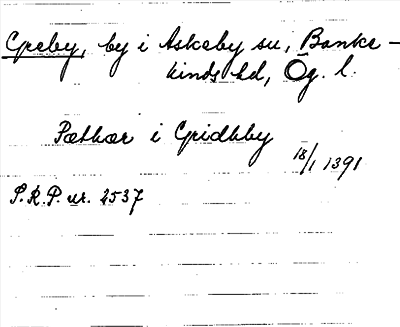 Greby, by i Askeby sn, Banke-
kinds hd, Ög. l.
Pæthær i Gridhby
18/1 1391
S.R.P. nr. 2537